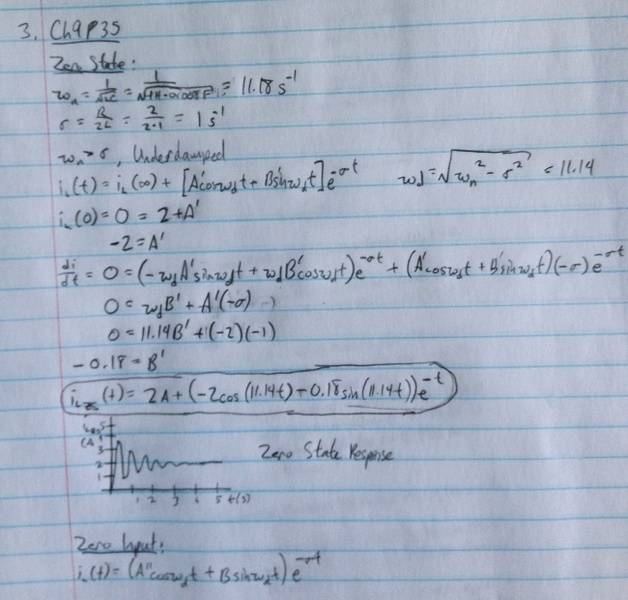 3. Ch9P35
Zero State:
ωn = 1/√LC = 1/√(1H·0.008F) = 11.18 s⁻¹
σ = R/2L = 2/2·1 = 1 s⁻¹
ωn > σ, Underdamped
iL(t) = iL(∞) + [A'cosωdt + B'sinωdt]e^-σt ωd = √(ωn² - σ²) = 11.14
iL(0) = 0 = 2 + A'
-2 = A'
di/dt = 0 = (-ωdA'sinωdt + ωdB'cosωdt)e^-σt + (A'cosωdt + B'sinωdt)(-σ)e^-σt
0 = ωdB' + A'(-σ)
0 = 11.14B' + (-2)(-1)
-0.18 = B'
iLzs(t) = 2A + (-2cos(11.14t) - 0.18sin(11.14t))e^-t
(A)
5
3
2
1
1 2 3 4 5 t(s)
Zero State Response
Zero Input:
iL(t) = (A"cosωdt + Bsinωdt)e^-σt